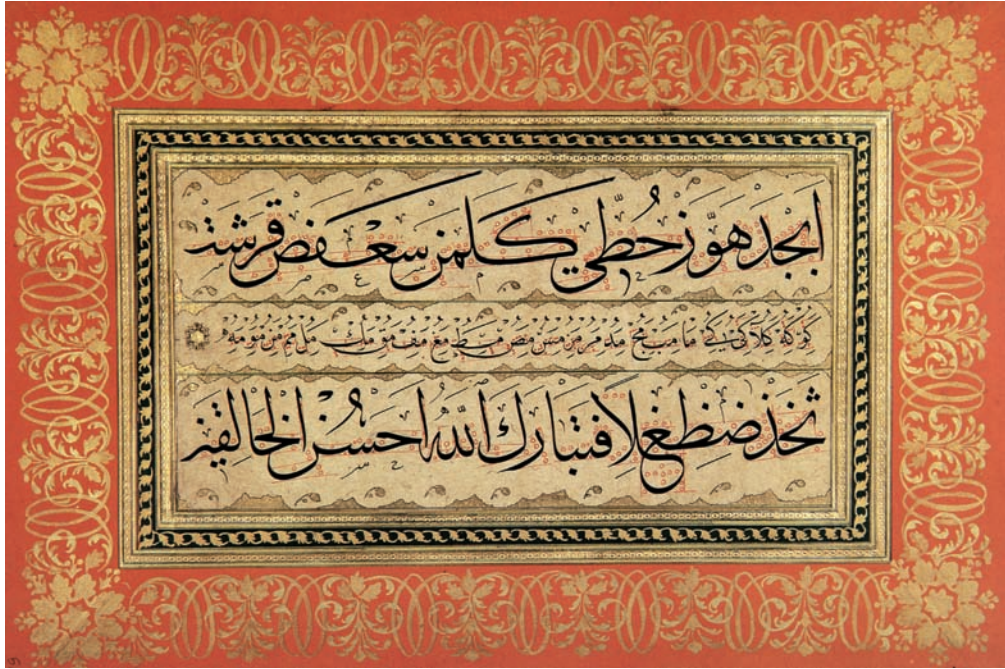 ابجد هوز حطي كلمن سعفص قرشت
كو كه كلا كي ما مب مج مد مر مس مص مط مع مف مق مك مل مم من مو مه
ثخذ ضظغ لا فتبارك الله احسن الخالقين